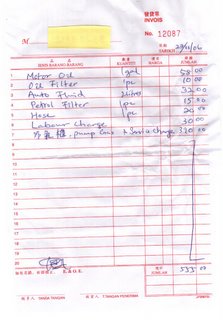 發貨單
INVOIS
No 12087
M
TARIKH 28/11/06
JENIS BARANG-BARANG KUANTITI HARGA JUMLAH
1 Motor Oil 1gal 58 00
2 Oil Filter 1pc 10 00
3 Auto Fluid 2 litres 32 00
4 Petrol Filter 1pc 15 00
5 Hose 1pc 20 00
6 Labour Charge 30 00
7 pump Gas + Service Charge
8
9
10
11
12
13
14
15
16
17
18
19
20
E.& O.E. JUMLAH 533 00
TANDA TANGAN TANDATANGAN PENERIMA